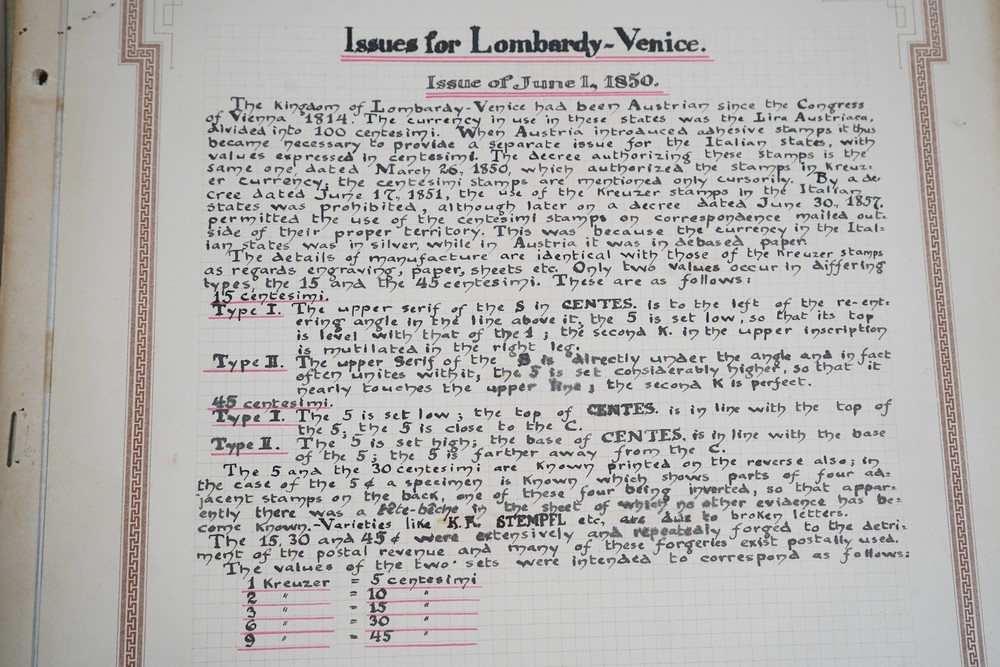 Issues for Lombardy-Venice.
Issue of June 1, 1850.
The Kingdom of Lombardy-Venice had been Austrian since the Congress
of Vienna 1814. The currency in use in these states was the Lira Austriaca,
divided into 100 centesimi. When Austria introduced adhesive stamps it thus
became necessary to provide a separate issue for the Italian states, with
values expressed in centesimi. The decree authorizing these stamps is the
same one, dated March 26, 1850, which authorized the stamps in Kreuz=
er currency, the centesimi stamps are mentioned only cursorily. By a de=
cree dated June 17, 1851, the use of the Kreuzer stamps in the Italian
states was prohibited, although later on a decree dated June 30, 1857,
permitted the use of the centesimi stamps on correspondence mailed out=
side of their proper territory. This was because the currency in the Ital=
ian states was in silver, while in Austria it was in debased paper.
The details of manufacture are identical with those of the Kreuzer stamps
as regards engraving, paper, sheets etc. Only two values occur in differing
types, the 15 and the 45 centesimi. These are as follows:
15 centesimi.
Type I. The upper serif of the S in CENTES. is to the left of the re-ent=
ering angle in the line above it, the 5 is set low, so that its top
is level with that of the 1; the second K. in the upper inscription
is mutilated in the right leg.
Type II. The upper Serif of the S is directly under the angle and in fact
often unites with it, the 5 is set considerably higher, so that it
nearly touches the upper line; the second K is perfect.
45 centesimi.
Type I. The 5 is set low; the top of CENTES. is in line with the top of
the 5; the 5 is close to the C.
Type II. The 5 is set high; the base of CENTES. is in line with the base
of the 5; the 5 is farther away from the C.
The 5 and the 30 centesimi are known printed on the reverse also; in
the case of the 5 ¢ a specimen is known which shows parts of four ad=
jacent stamps on the back, one of these four being inverted, so that appar=
ently there was a tête-bêche in the sheet of which no other evidence has be=
come known.-Varieties like K.R. STEMPFL etc, are due to broken letters.
The 15, 30 and 45 ¢ were extensively and repeatedly forged to the detri=
ment of the postal revenue and many of these forgeries exist postally used.
The values of the two sets were intended to correspond as follows:
1 Kreuzer = 5 centesimi
2 " = 10 "
3 " = 15 "
6 " = 30 "
9 " = 45 "